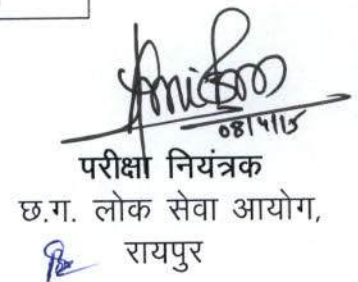 08/4/15
परीक्षा नियंत्रक
छ.ग. लोक सेवा आयोग,
रायपुर